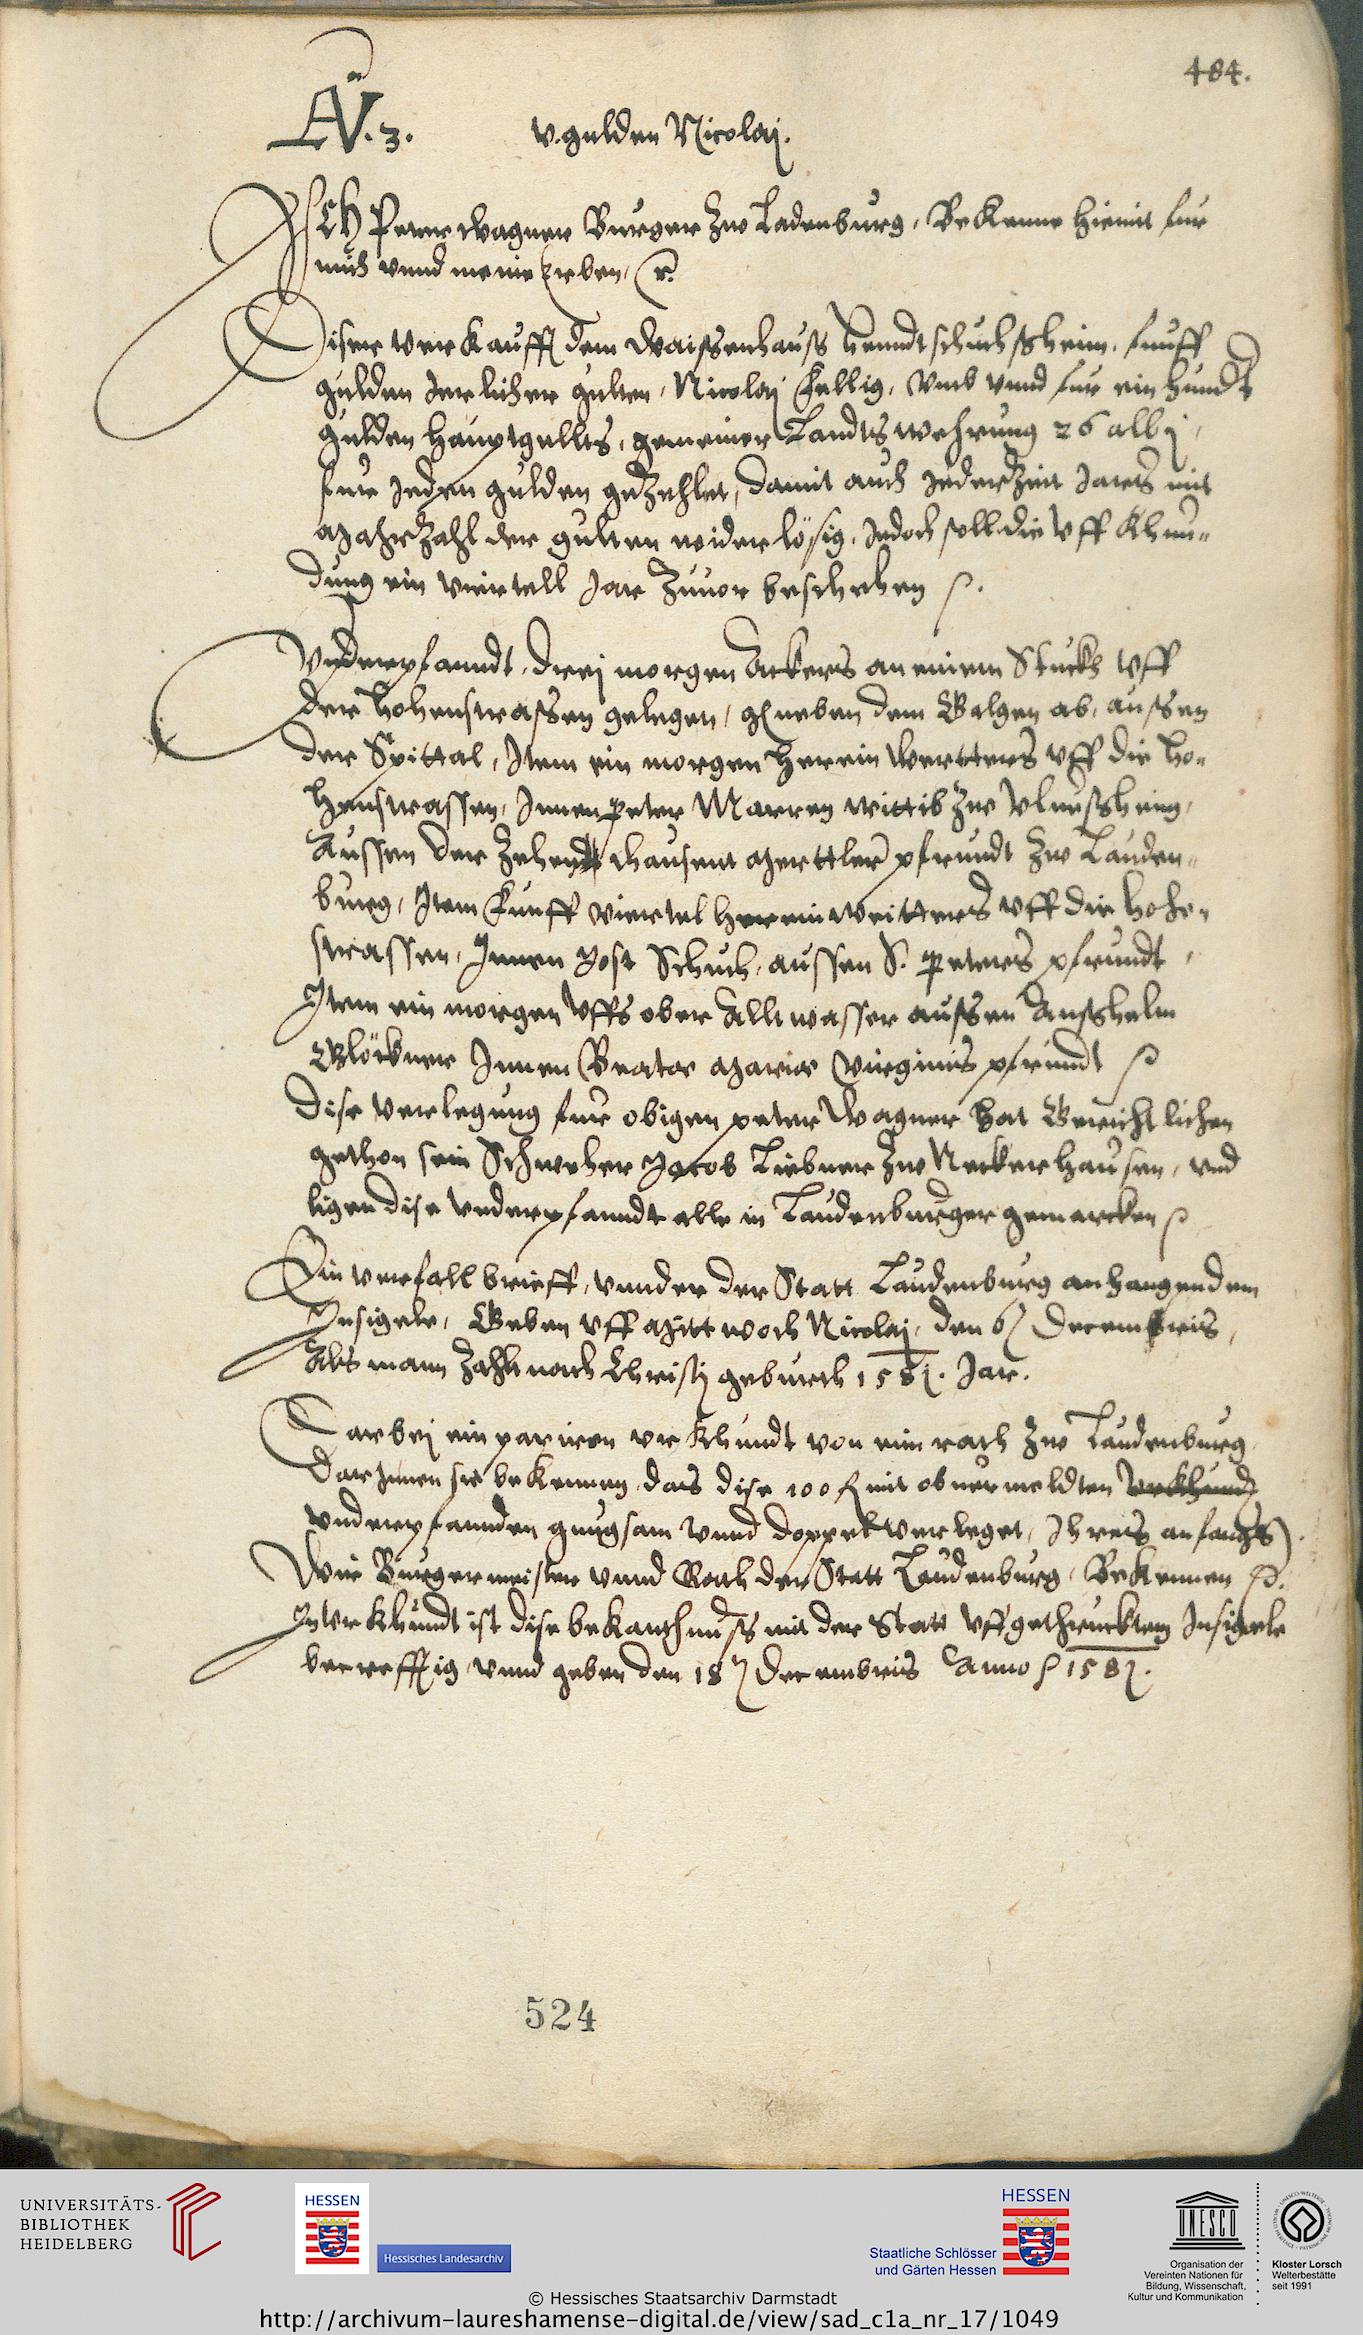 484.
AV. 3. v. gulden Nicolaj.
ICH Peter Wagner Burger zw Ladenburg, Bekenne hiemit fur
mich vnnd meine Erben, etc.
Diser verkaufft dem Waissenhauss henndtschuchssheim, funff
gulden Jerlicher gulten, Nicolaj fellig, vmb vnnd fur ein hundt
gulden hauptgellts, gemeiner Landtswehrung 26 albj,
fur jeden gulden gezehlet, damit auch jederzeit Jares mit
Mahrzahl der gulten widerlösig, Jedoch soll die vff khun-
dung ein viertell Jar zuuor beschehen
Vnderpfanndt, drej morgen Ackers an einem Stuckh vff
der hohenstrassen gelegen, neben dem Galgen ab, aussen
der Spittal, Item ein morgen herein wertters vff die ho-
henstrassen, Innen peter Marren wittib zw Vluesheim,
Aussen der Zehendt pfrundt zw Lauden-
burg, Item funff viertel herein weitters vff die hohe-
strassen, Innen Jost Schuch, aussen S. Peters pfrundt,
Item ein morgen vffs ober Alltwasser aussen Ansshelm
Glöckner Innen Beatae Mariae Virginis pfrundt
Dise verlegung fur obigen peter Wagner hat Gerichtlichen
gethon sein Schweher Jacob Liebner zw Neckerhausen, vnd
ligen dise vnderpfanndt alle in Laudenburger gemarcken
Ein verfallbrieff, vnnder der Statt Laudenburg anhangendem
Insigele, Geben vff Mittwoch Nicolaj, den 6 Decembris,
Als mann zahlt nach Christj geburth 1581. Jar.
Darbej ein vrkhundt von eim rath zw Laudenburg
darJnnen sie bekennen das dise 100 fl mit obuermeldten
vnderpfannden gnugsam vnnd doppel verleget, Ihres anfangs
Wir Burgermeister vnnd Rath der Statt Laudenburg, Bekennen
In vrkhundt ist dise bekanthnuss mit der Statt vffgethruckten Insigele
becrefftig, vnnd geben den 18 Decembris Anno 1581.
524
UNIVERSITÄTS-
BIBLIOTHEK
HEIDELBERG
HESSEN
Hessisches Landesarchiv
HESSEN
Staatliche Schlösser
und Gärten Hessen
UNESCO
Organisation der
Vereinten Nationen für
Bildung, Wissenschaft,
Kultur und Kommunikation
Kloster Lorsch
Welterbestätte
seit 1991
© Hessisches Staatsarchiv Darmstadt
http://archivum-laureshamense-digital.de/view/sad_c1a_nr_17/1049